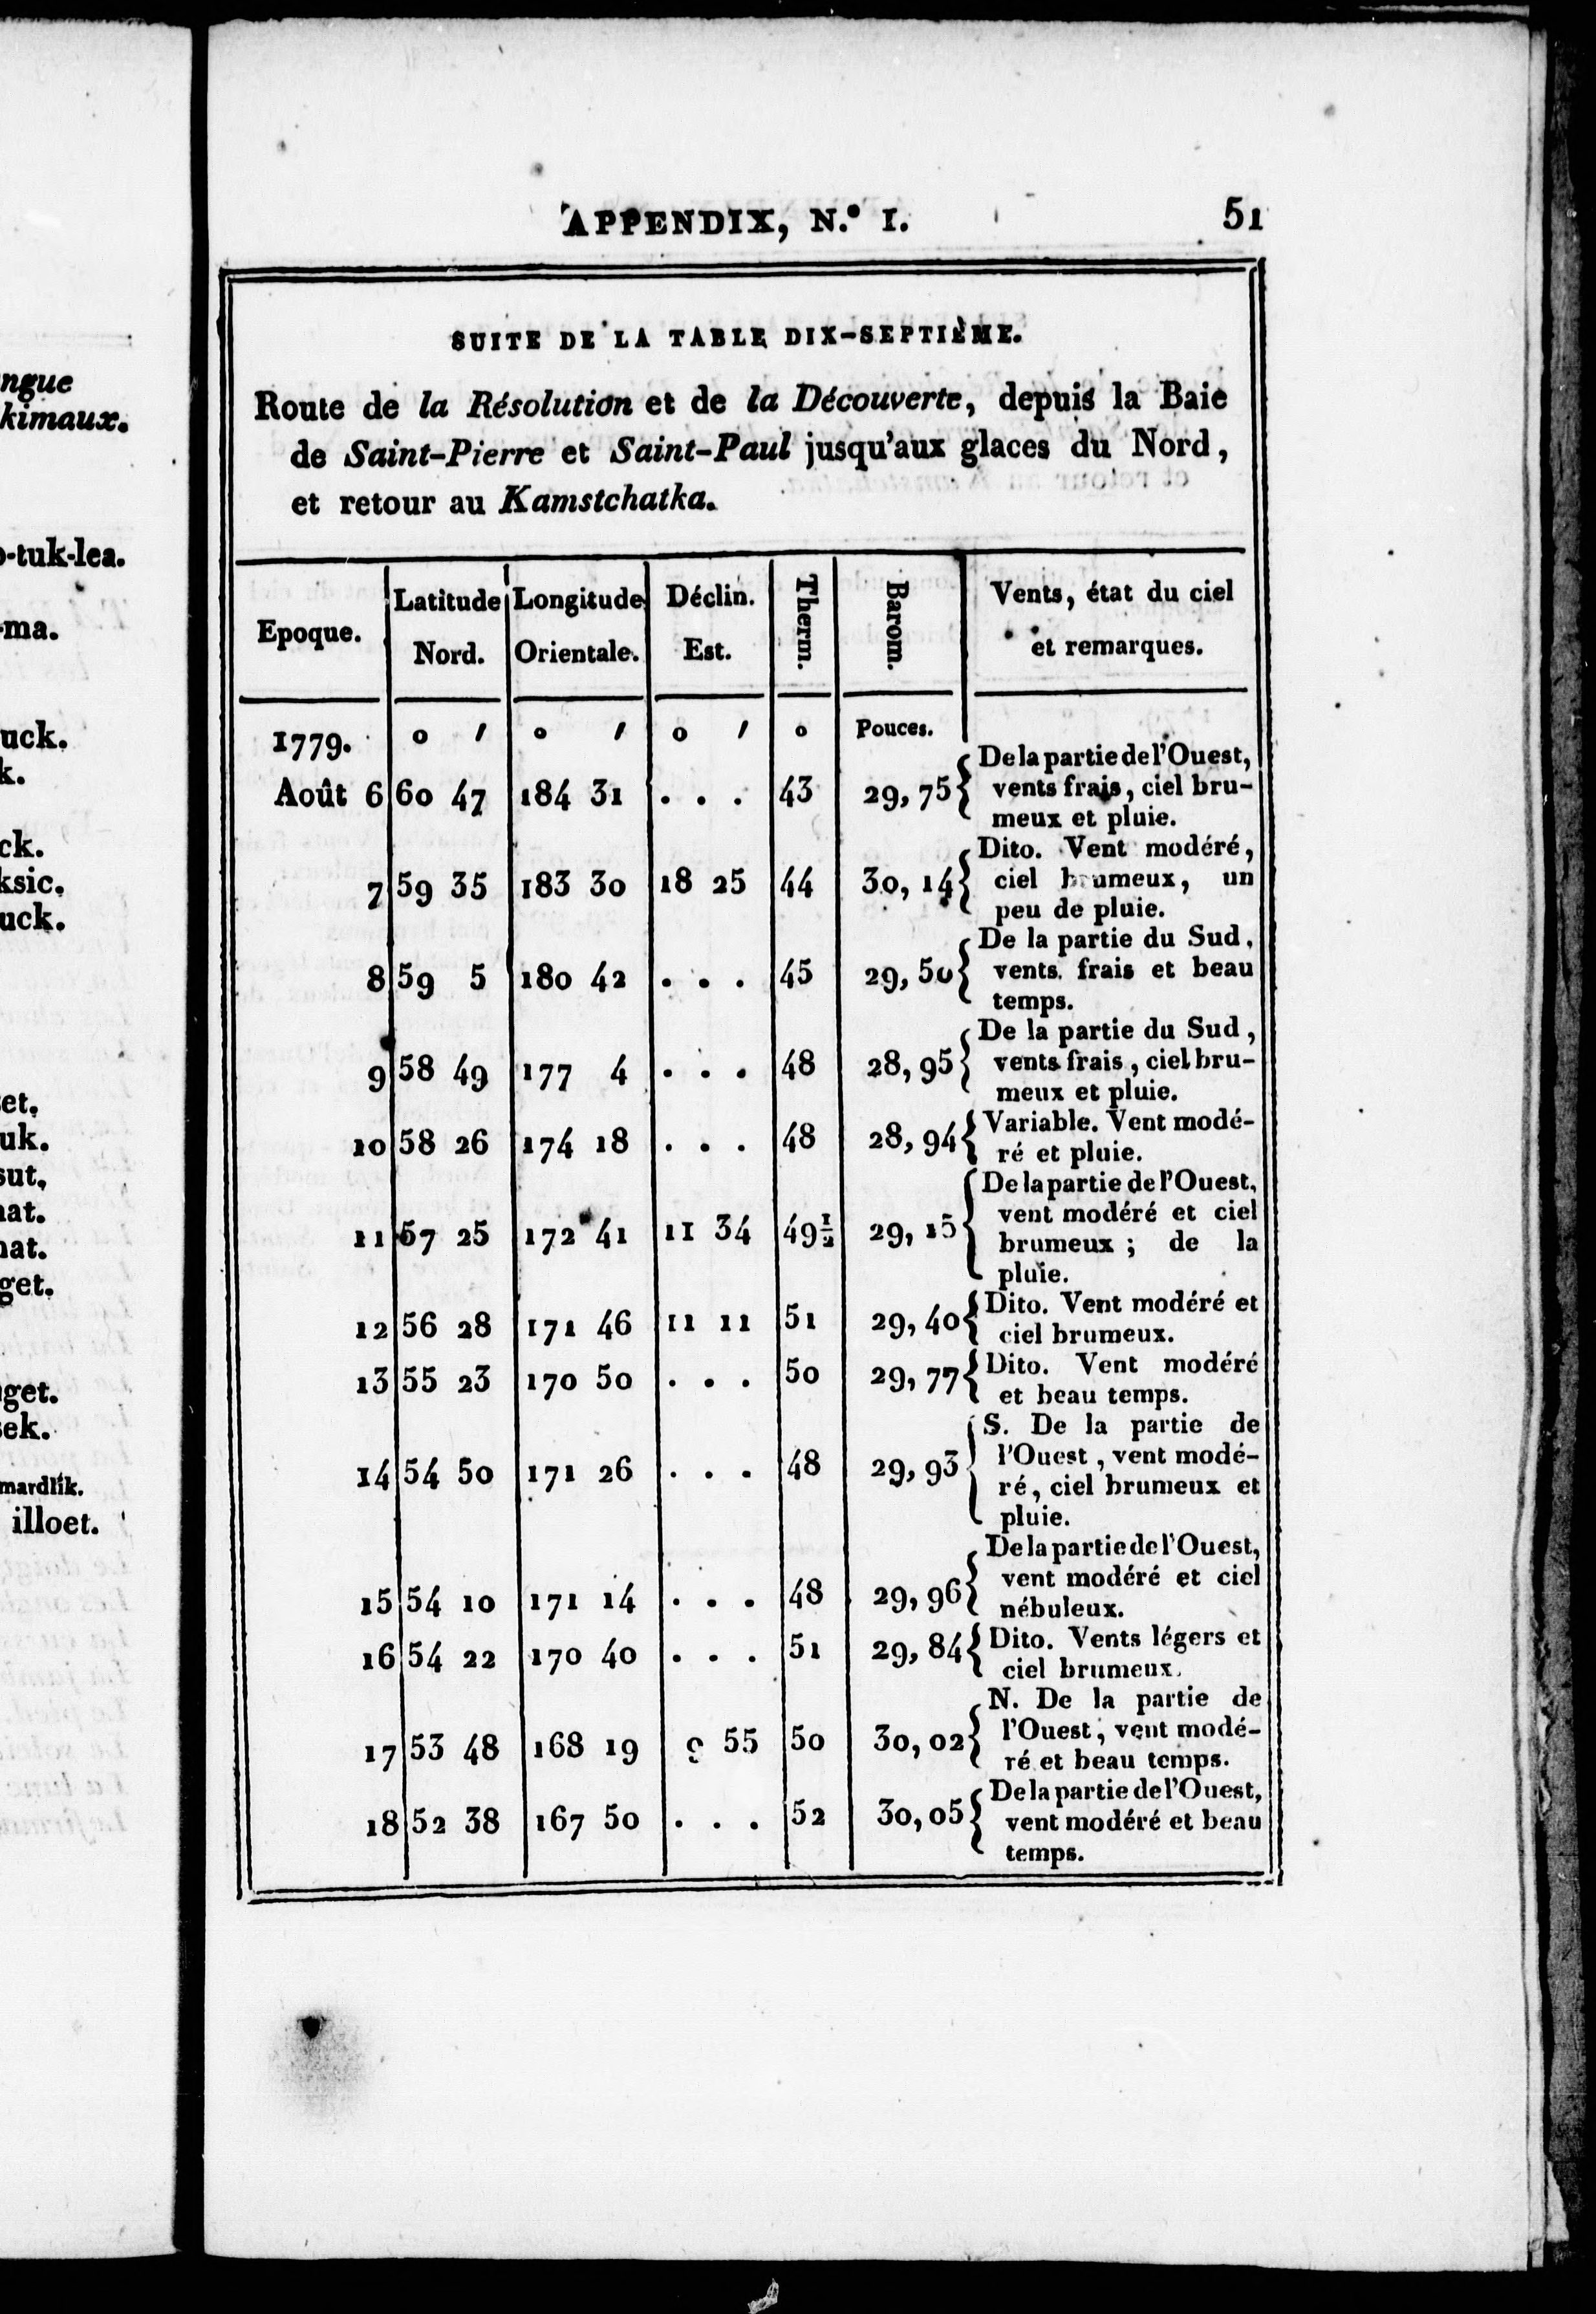 ngue
kimaux.
-tuk-lea.
-ma.
uck.
k.
ck.
ksic.
uck.
et.
uk.
sut.
nat.
nat.
get.
get.
sek.
mardlik.
illoet.
APPENDIX, N.º I. 51
SUITE DE LA TABLE DIX-SEPTIÈME.
Route de la Résolution et de la Découverte, depuis la Baie
de Saint-Pierre et Saint-Paul jusqu'aux glaces du Nord,
et retour au Kamstchatka.
Epoque. Latitude Nord. Longitude Orientale. Déclin. Est. Therm. Barom. Vents, état du ciel et remarques.
1779. o ′ o ′ o ′ o Pouces.
Août 6 60 47 184 31 . . . 43 29,75 { De la partie de l'Ouest,
vents frais, ciel bru-
meux et pluie.
7 59 35 183 30 18 25 44 30,14 { Dito. Vent modéré,
ciel brumeux, un
peu de pluie.
8 59 5 180 42 . . . 45 29,50 { De la partie du Sud,
vents frais et beau
temps.
9 58 49 177 4 . . . 48 28,95 { De la partie du Sud,
vents frais, ciel bru-
meux et pluie.
10 58 26 174 18 . . . 48 28,94 { Variable. Vent modé-
ré et pluie.
11 57 25 172 41 11 34 49 1/2 29,15 { De la partie de l'Ouest,
vent modéré et ciel
brumeux ; de la
pluie.
12 56 28 171 46 11 11 51 29,40 { Dito. Vent modéré et
ciel brumeux.
13 55 23 170 50 . . . 50 29,77 { Dito. Vent modéré
et beau temps.
14 54 50 171 26 . . . 48 29,93 { S. De la partie de
l'Ouest, vent modé-
ré, ciel brumeux et
pluie.
15 54 10 171 14 . . . 48 29,96 { De la partie de l'Ouest,
vent modéré et ciel
nébuleux.
16 54 22 170 40 . . . 51 29,84 { Dito. Vents légers et
ciel brumeux.
17 53 48 168 19 9 55 50 30,02 { N. De la partie de
l'Ouest, vent modé-
ré et beau temps.
18 52 38 167 50 . . . 52 30,05 { De la partie de l'Ouest,
vent modéré et beau
temps.